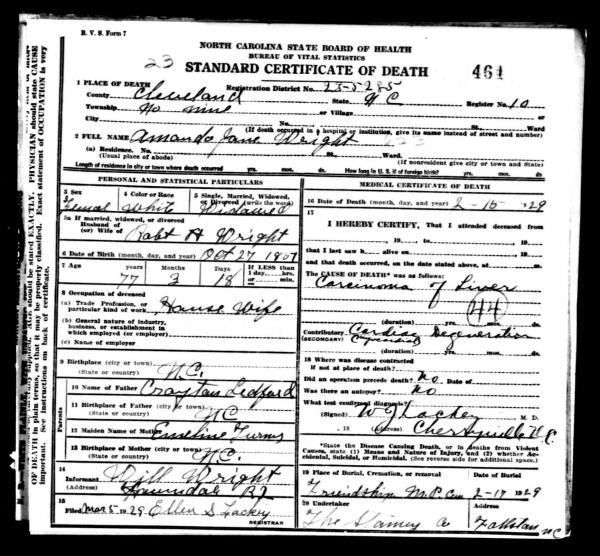 B. V. S. Form 7
NORTH CAROLINA STATE BOARD OF HEALTH
BUREAU OF VITAL STATISTICS
STANDARD CERTIFICATE OF DEATH
23
461
1 PLACE OF DEATH
Registration District No. 23-5285
County Cleveland State N C Register No. 10
Township No nine or Village
City No. St. Ward
(If death occurred in a hospital or institution, give its name instead of street and number)
2 FULL NAME Amanda Jane Wright
(a) Residence. No. St. Ward.
(Usual place of abode) (If nonresident give city or town and State)
Length of residence in city or town where death occurred yrs. mos. ds. How long in U. S. if of foreign birth? yrs. mos. ds.
PERSONAL AND STATISTICAL PARTICULARS
3 Sex 4 Color or Race 5 Single, Married, Widowed, or Divorced (write the word)
Female White Widowed
5a If married, widowed, or divorced
Husband of
(or) Wife of Robt H Wright
6 Date of Birth (month, day, and year) Oct 27
7 Age years Months Days If LESS than
1 day, hrs.
or min.
77 3 18
8 Occupation of deceased
(a) Trade, Profession, or
particular kind of work House Wife
(b) General nature of industry,
business, or establishment in
which employed (or employer)
(c) Name of employer
9 Birthplace (city or town)
(State or country) N.C.
Parents
10 Name of Father Ledford
11 Birthplace of Father (city or town)
(State or country) NC
12 Maiden Name of Mother Emeline
13 Birthplace of Mother (city or town)
(State or country) N.C.
14
Informant Will Wright
(Address) Lawndale
15
Filed Mar 5, 1929 Ellen S Lackey
REGISTRAR
MEDICAL CERTIFICATE OF DEATH
16 Date of Death (month, day, and year) 2-15 1929
17
I HEREBY CERTIFY, That I attended deceased from
, 19 , to , 19
that I last saw h alive on , 19
and that death occurred, on the date stated above, at m.
The CAUSE OF DEATH* was as follows:
Carcinoma of Liver
44
(duration) yrs. mos. ds.
Contributory Cardiac Degeneration
(SECONDARY)
(duration) yrs. mos. ds.
18 Where was disease contracted
if not at place of death?
Did an operation precede death? No Date of
Was there an autopsy? No
What test confirmed diagnosis?
(Signed) Lackey M. D.
, 19 (Address) Cherryville N.C.
*State the Disease Causing Death, or in deaths from Violent
Causes, state (1) Means and Nature of Injury, and (2) whether Accidental, Suicidal, or Homicidal. (See reverse side for additional space.)
19 Place of Burial, Cremation, or removal Date of Burial
Friendship M.P. Cem 2-17 1929
20 Undertaker Address
The Stamey Co Fallston NC